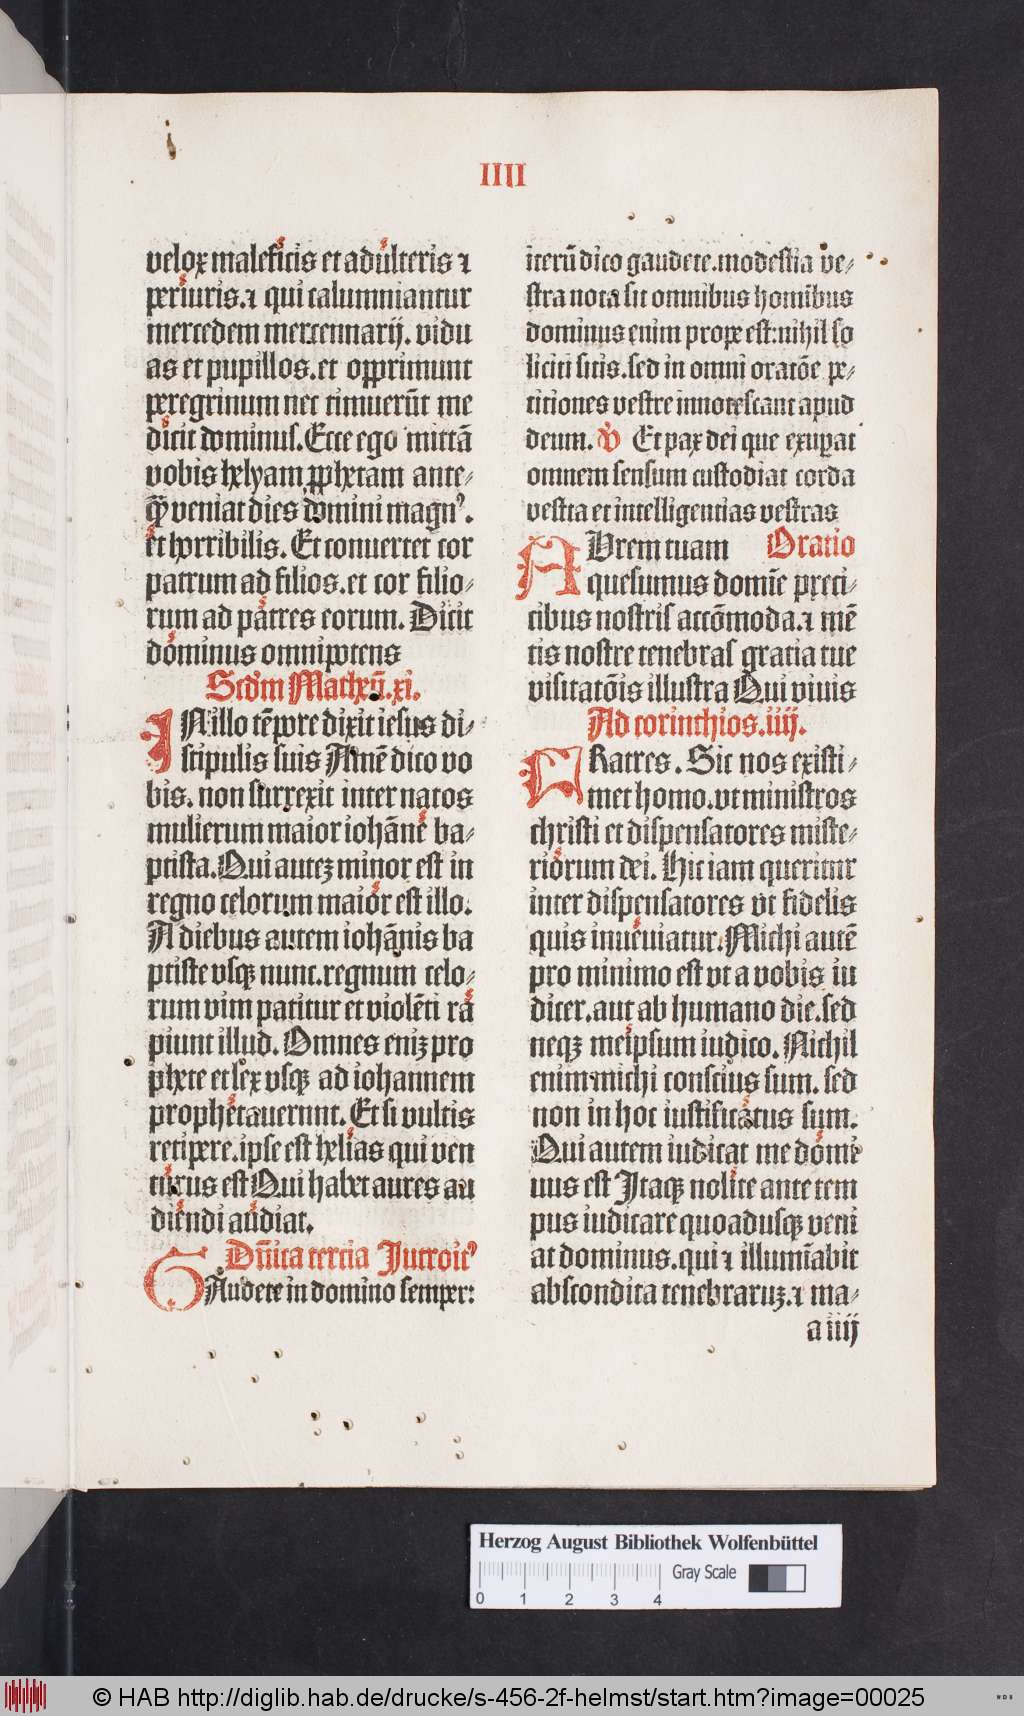 IIII
velox maleficis et adulteris ⁊
periuris.⁊ qui calumniantur
mercedem mercennarij. vidu
as et pupillos.et opprimunt
peregrinum nec timuerūt me
dicit dominus.Ecce ego mittā
vobis helyam ꝓphetam ante⸗
ꝙ̄ veniat dies domini magnꝰ.
et horribilis. Et conuertet cor
patrum ad filios.et cor filio⸗
rum ad patres eorum. Dicit
dominus omnipotens
Scdm̄ Matheū.xi.
IN illo tēpore dixit iesus di⸗
scipulis suis Amē dico vo
bis. non surrexit inter natos
mulierum maior iohāne ba⸗
ptista.Qui autez minor est in
regno celorum maior est illo.
A diebus autem iohānis ba
ptiste vsqꝫ nunc.regnum celo⸗
rum vim patitur et violēti ra
piunt illud. Omnes enīz pro
phete et lex vsqꝫ ad iohannem
prophetauerunt. Et si vultis
recipere.ipse est helias qui ven
turus est Qui habet aures au
diendi audiat.
Dn̄ica tercia Introitꝰ
GAudete in domino semper:
iterū dico gaudete.modestia ve⸗
stra nota sit omnibus hominibus
dominus enim prope est:nihil so
liciti sitis.sed in omni oratōe pe⸗
ticiones vestre innotescant apud
deum. V̊ Et pax dei que exuꝑat
omnem sensum custodiat corda
vestra et intelligentias vestras
Oratio
AVrem tuam
quesumus domīe preci⸗
cibus nostris accōmoda.⁊ mē
tis nostre tenebras gracia tue
visitatōis illustra Qui viuis
Ad corinthios.iiij.
FRatres. Sic nos existi⸗
met homo.vt ministros
christi et dispensatores miste⸗
riorum dei. Hic iam queritur
inter dispensatores vt fidelis
quis inueniatur.Michi autē
pro minimo est vt a vobis iu
dicer.aut ab humano die.sed
neqꝫ meipsum iudico. Nichil
enim michi conscius sum. sed
non in hoc iustificatus sum.
Qui autem iudicat me domi
nus est Itaqꝫ nolite ante tem
pus iudicare quoadusqꝫ veni
at dominus.qui ⁊ illumīabit
abscondita tenebraruz.⁊ ma⸗
a iiij
Herzog August Bibliothek Wolfenbüttel
Gray Scale
0 1 2 3 4
© HAB http://diglib.hab.de/drucke/s-456-2f-helmst/start.htm?image=00025